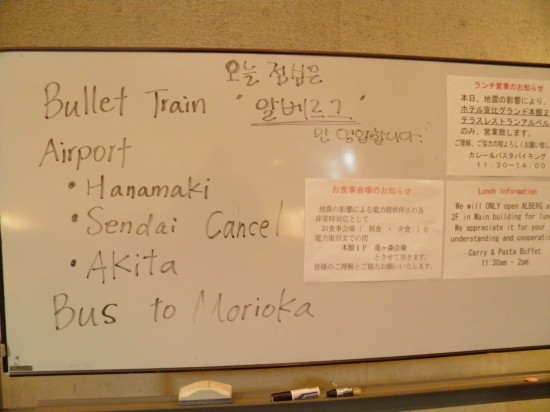 오늘 점심은
Bullet Train "알베르그"
만 영업합니다.
Airport
• Hanamaki
• Sendai Cancel
• Akita
Bus to Morioka
お食事会場のお知らせ
地震の影響による電力提供停止の為
非常時対応として
お食事会場（朝食・夕食）を
電力復旧までの間
本館1F 竜ヶ森会場
とさせて頂きます。
皆様のご理解とご協力お願いいたします。
ランチ営業のお知らせ
本日、地震の影響により、
ホテル安比グランド本館2
テラスレストランアルベル
のみ、営業致します。
ご理解、ご協力の程よろしくお願い致
カレー＆パスタバイキング
11:30~14:00
Lunch Information
We will ONLY open ALBERG a
2F in Main building for lun
We appreciate it for your
understanding and cooperatio
Carry & Pasta Buffet
11:30am - 2pm